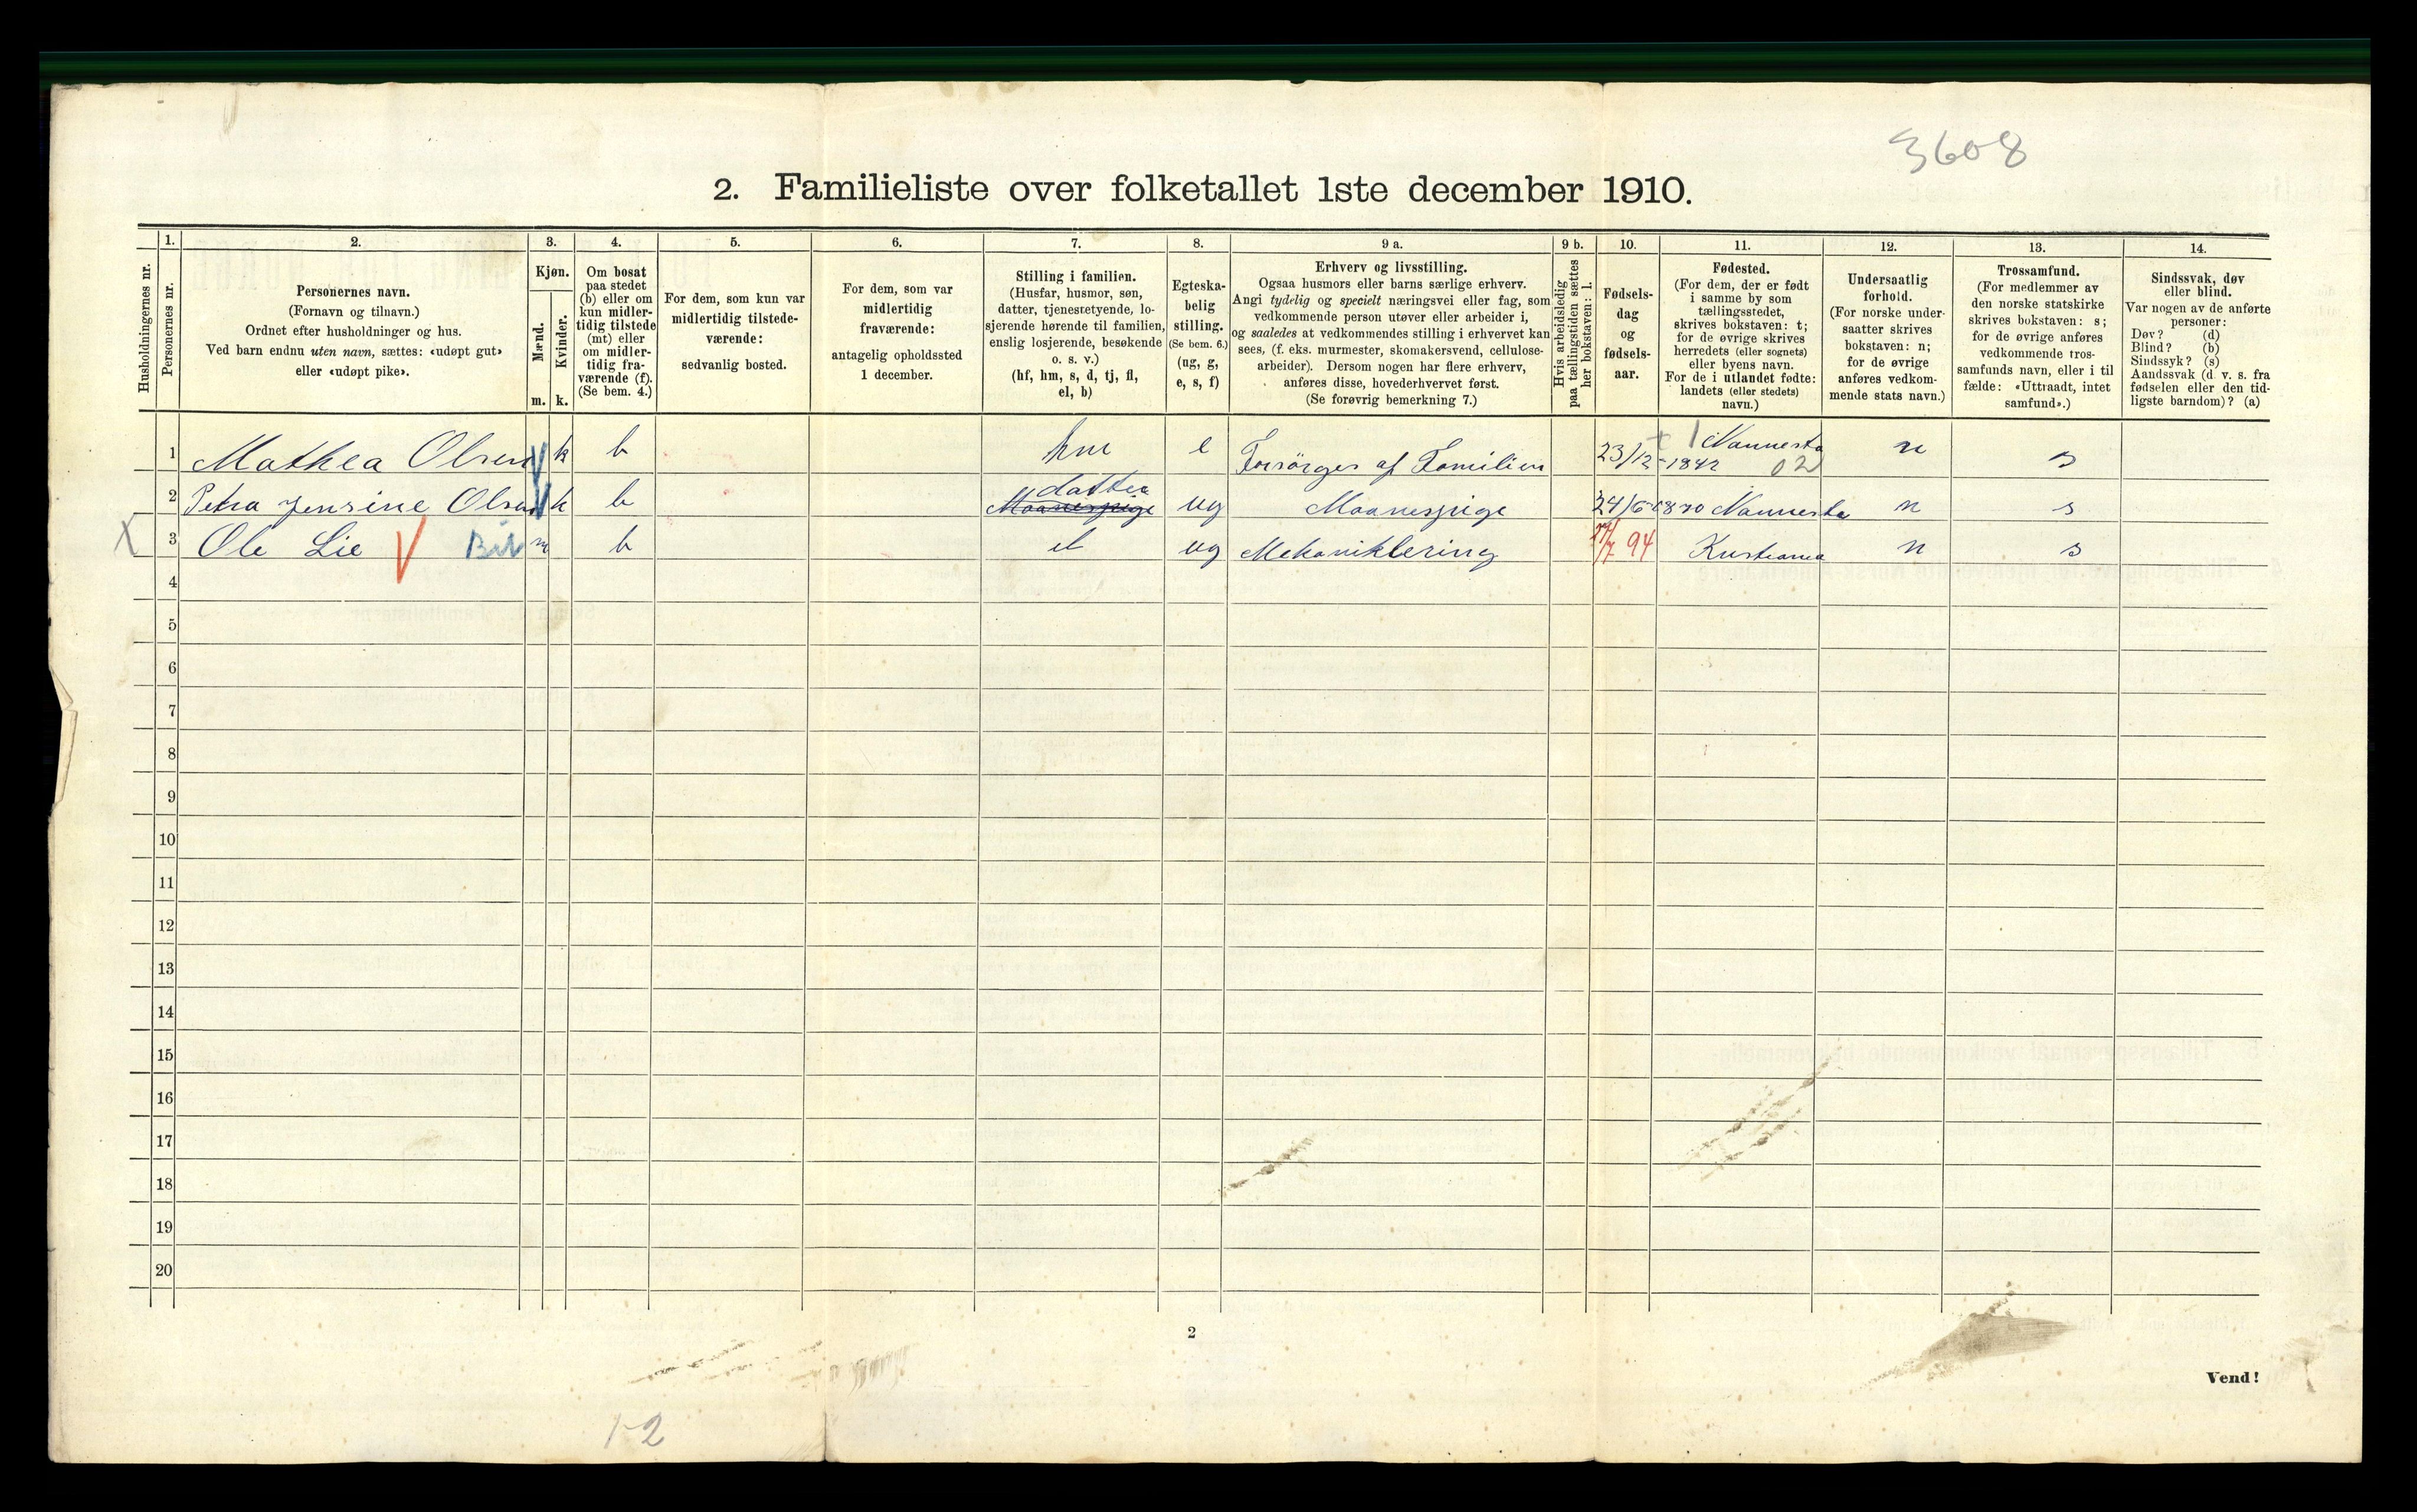 3608
2. Familieliste over folketallet 1ste december 1910.
Husholdningernes nr.
1.
Personernes nr.
2.
Personernes navn.
(Fornavn og tilnavn.)
Ordnet efter husholdninger og hus.
Ved barn endnu uten navn, sættes: «udøpt gut»
eller «udøpt pike».
3.
Kjøn.
Mænd.
Kvinder.
m. k.
4.
Om bosat
paa stedet
(b) eller om
kun midler-
tidig tilstede
(mt) eller
om midler-
tidig fra-
værende (f).
(Se bem. 4.)
5.
For dem, som kun var
midlertidig tilstede-
værende:
sedvanlig bosted.
6.
For dem, som var
midlertidig
fraværende:
antagelig opholdssted
1 december.
7.
Stilling i familien.
(Husfar, husmor, søn,
datter, tjenestetyende, lo-
sjerende hørende til familien,
enslig losjerende, besøkende
o. s. v.)
(hf, hm, s, d, tj, fl,
el, b)
8.
Egteska-
belig
stilling.
(Se bem. 6.)
(ug, g,
e, s, f)
9 a.
Erhverv og livsstilling.
Ogsaa husmors eller barns særlige erhverv.
Angi tydelig og specielt næringsvei eller fag, som
vedkommende person utøver eller arbeider i,
og saaledes at vedkommendes stilling i erhvervet kan
sees, (f. eks. murmester, skomakersvend, cellulose-
arbeider). Dersom nogen har flere erhverv,
anføres disse, hovederhvervet først.
(Se forøvrig bemerkning 7.)
9 b.
Hvis arbeidsledig
paa tællingstiden sættes
her bokstaven: l.
10.
Fødsels-
dag
og
fødsels-
aar.
11.
Fødested.
(For dem, der er født
i samme by som
tællingsstedet,
skrives bokstaven: t;
for de øvrige skrives
herredets (eller sognets)
eller byens navn.
For de i utlandet fødte:
landets (eller stedets)
navn.)
12.
Undersaatlig
forhold.
(For norske under-
saatter skrives
bokstaven: n;
for de øvrige
anføres vedkom-
mende stats navn.)
13.
Trossamfund.
(For medlemmer av
den norske statskirke
skrives bokstaven: s;
for de øvrige anføres
vedkommende tros-
samfunds navn, eller i til
fælde: «Uttraadt, intet
samfund».)
14.
Sindssvak, døv
eller blind.
Var nogen av de anførte
personer:
Døv? (d)
Blind? (b)
Sindssyk? (s)
Aandssvak (d. v. s. fra
fødselen eller den tid-
ligste barndom)? (a)
1 Mathea Olsen k b hm e Forsörges af Familien 23/12-1842 Nannesta 02 n s
2 Petra Jensine Olsen k b Maanespige datter ug Maanespige 24/6-1870 Nannesta n s
X 3 Ole Lie m b el ug Mekaniklering 94 Kristiania n s
4
5
6
7
8
9
10
11
12
13
14
15
16
17
18
19
20
2
Vend!
1-2